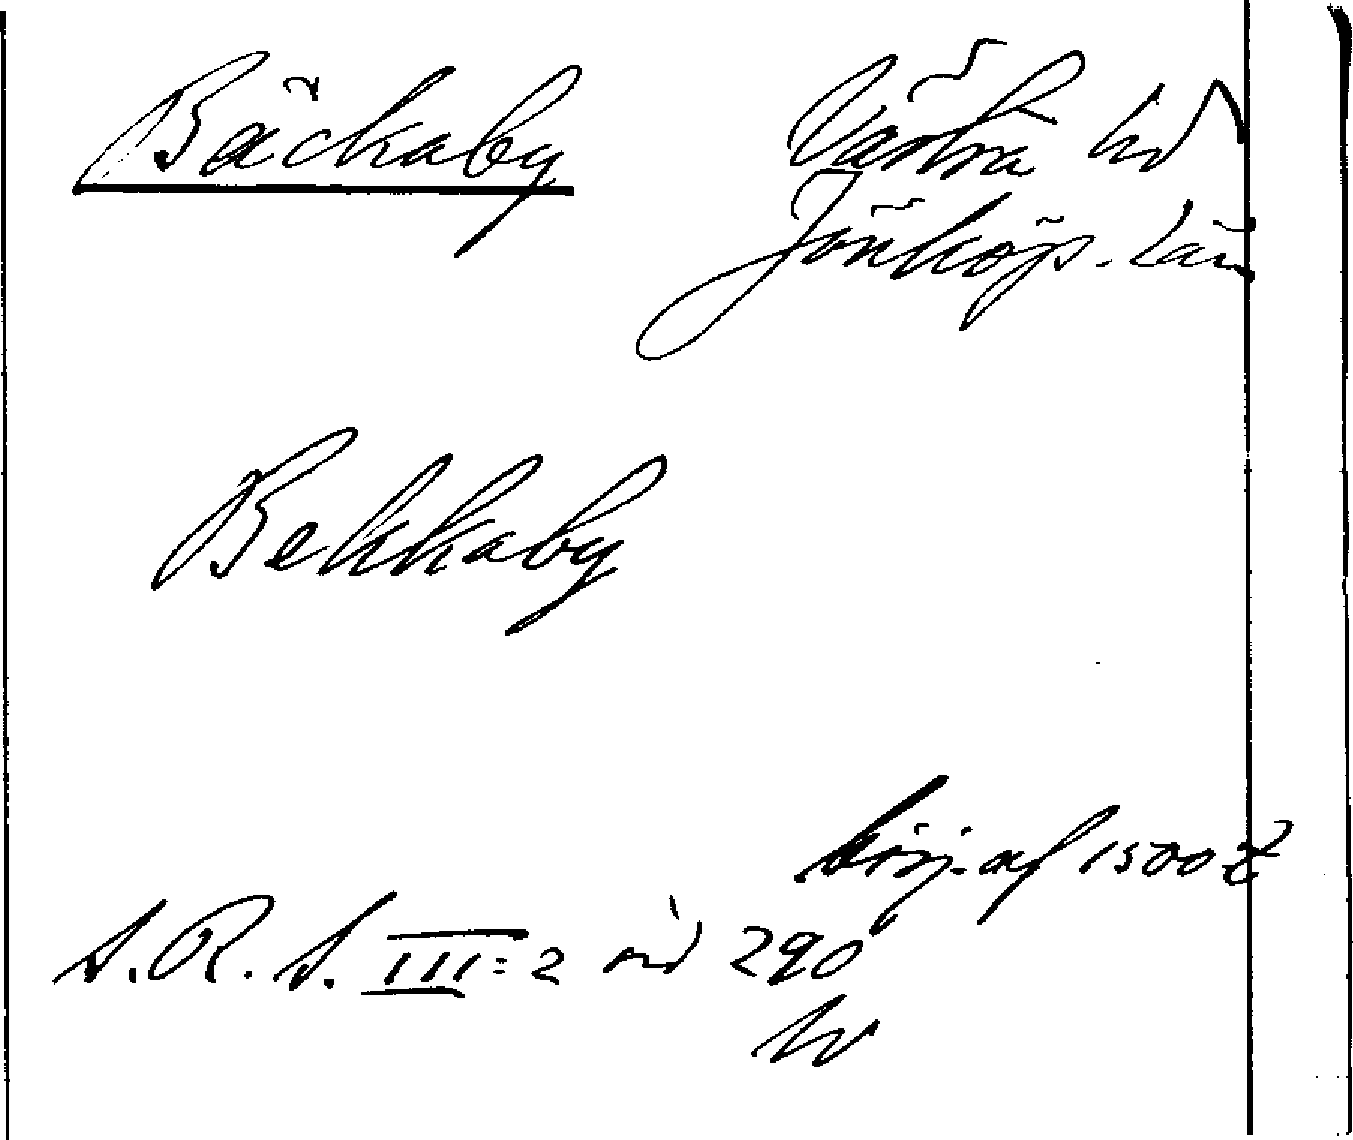 Bäckaby
Västra hd
Jönköp. Län
Bekkaby
börj. af 1500 t
S. R. S. III:2 sid 290